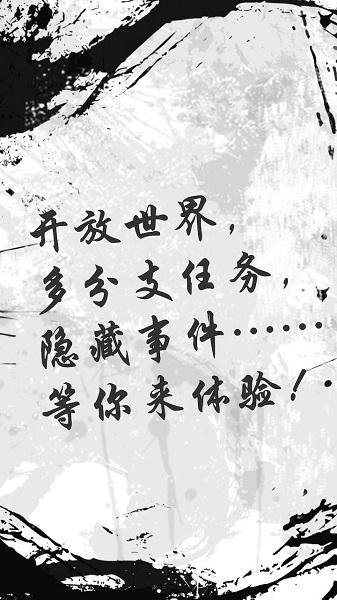 开放世界，
多分支任务，
隐藏事件······
等你来体验！